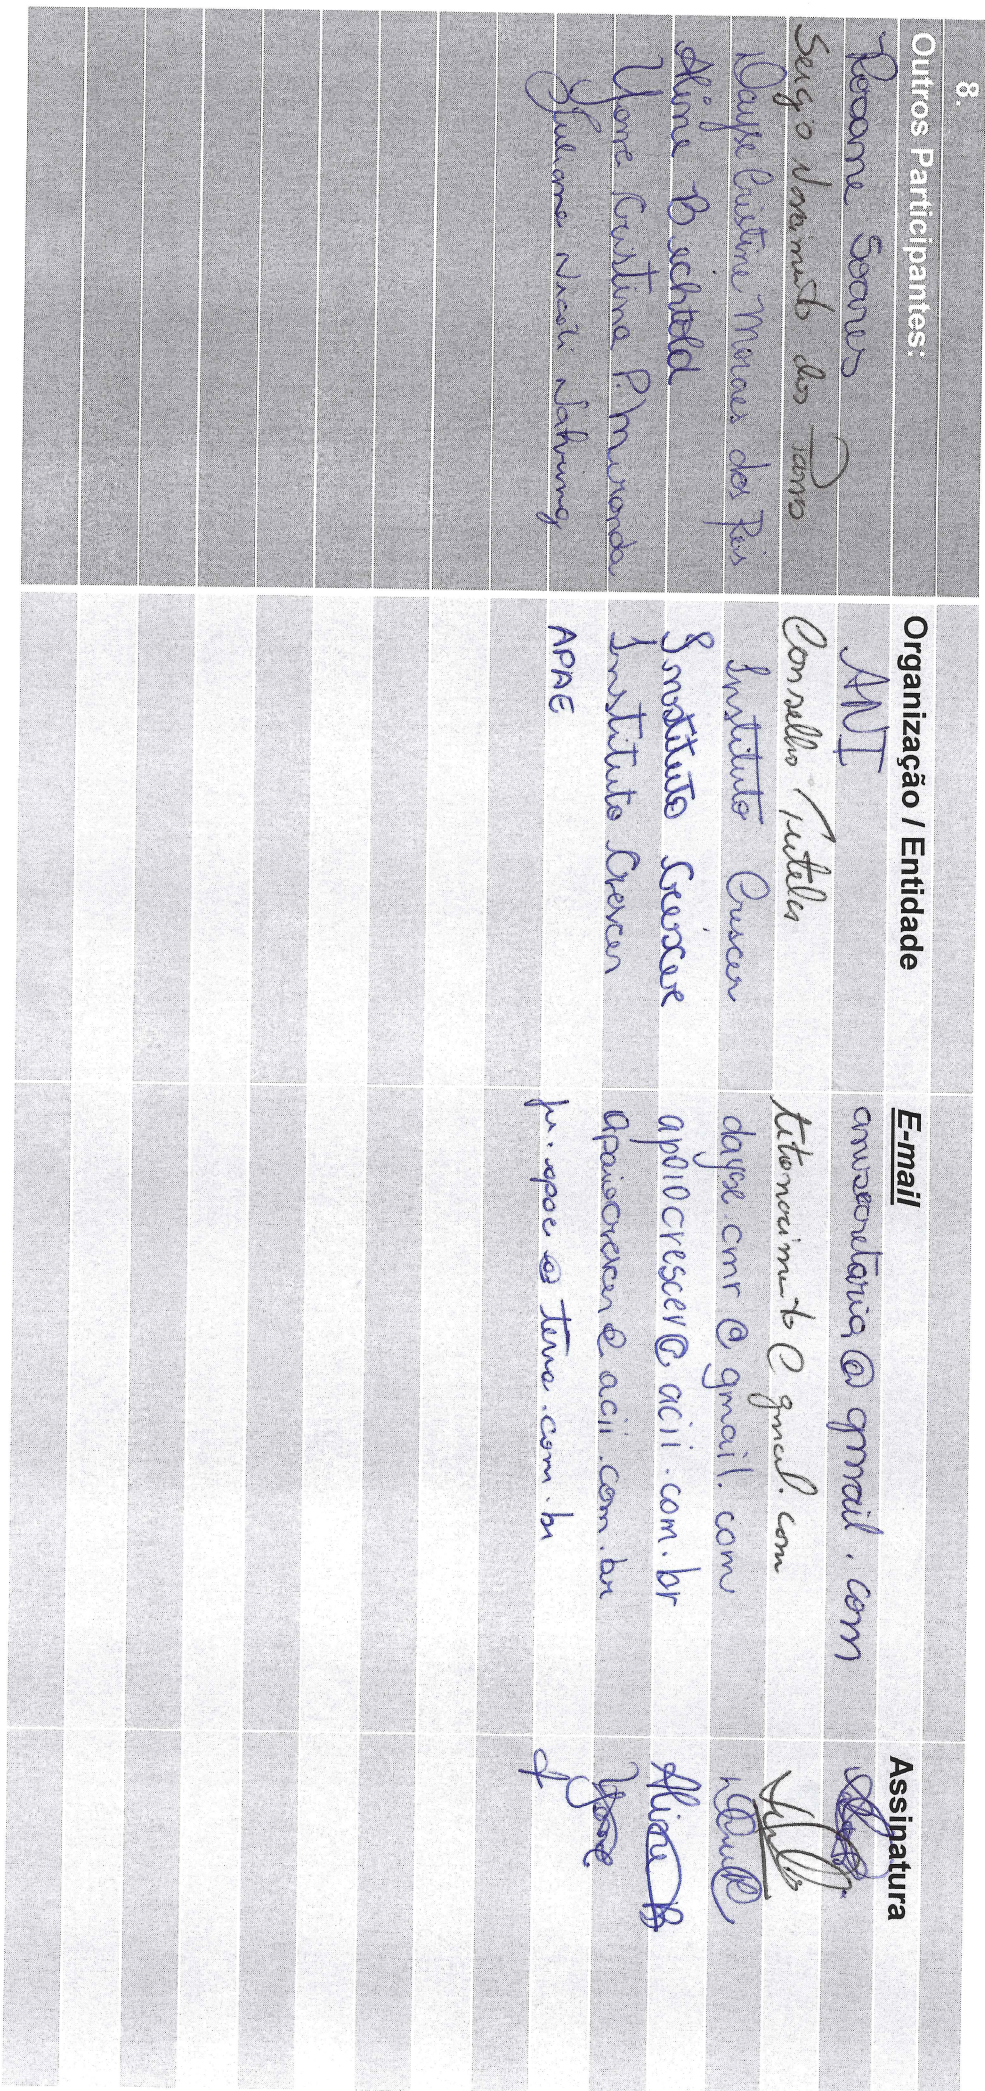 8.
Outros Participantes: Organização / Entidade E-mail Assinatura
Rosane Soares ANI anisecretaria@gmail.com
Sergio Nascimento dos Passos Conselho Tutelar titonascimento@gmail.com
Dayse Cristine Moraes dos Reis Instituto Crescer dayse.cmr@gmail.com
Aline Bechtold Instituto Crescer apoiocrescer@acii.com.br Aline B
Yone Cristina P. Miranda Instituto Crescer apoiocrescer@acii.com.br Yone
Juliana Nicoli Nahring APAE ju.apae@terra.com.br